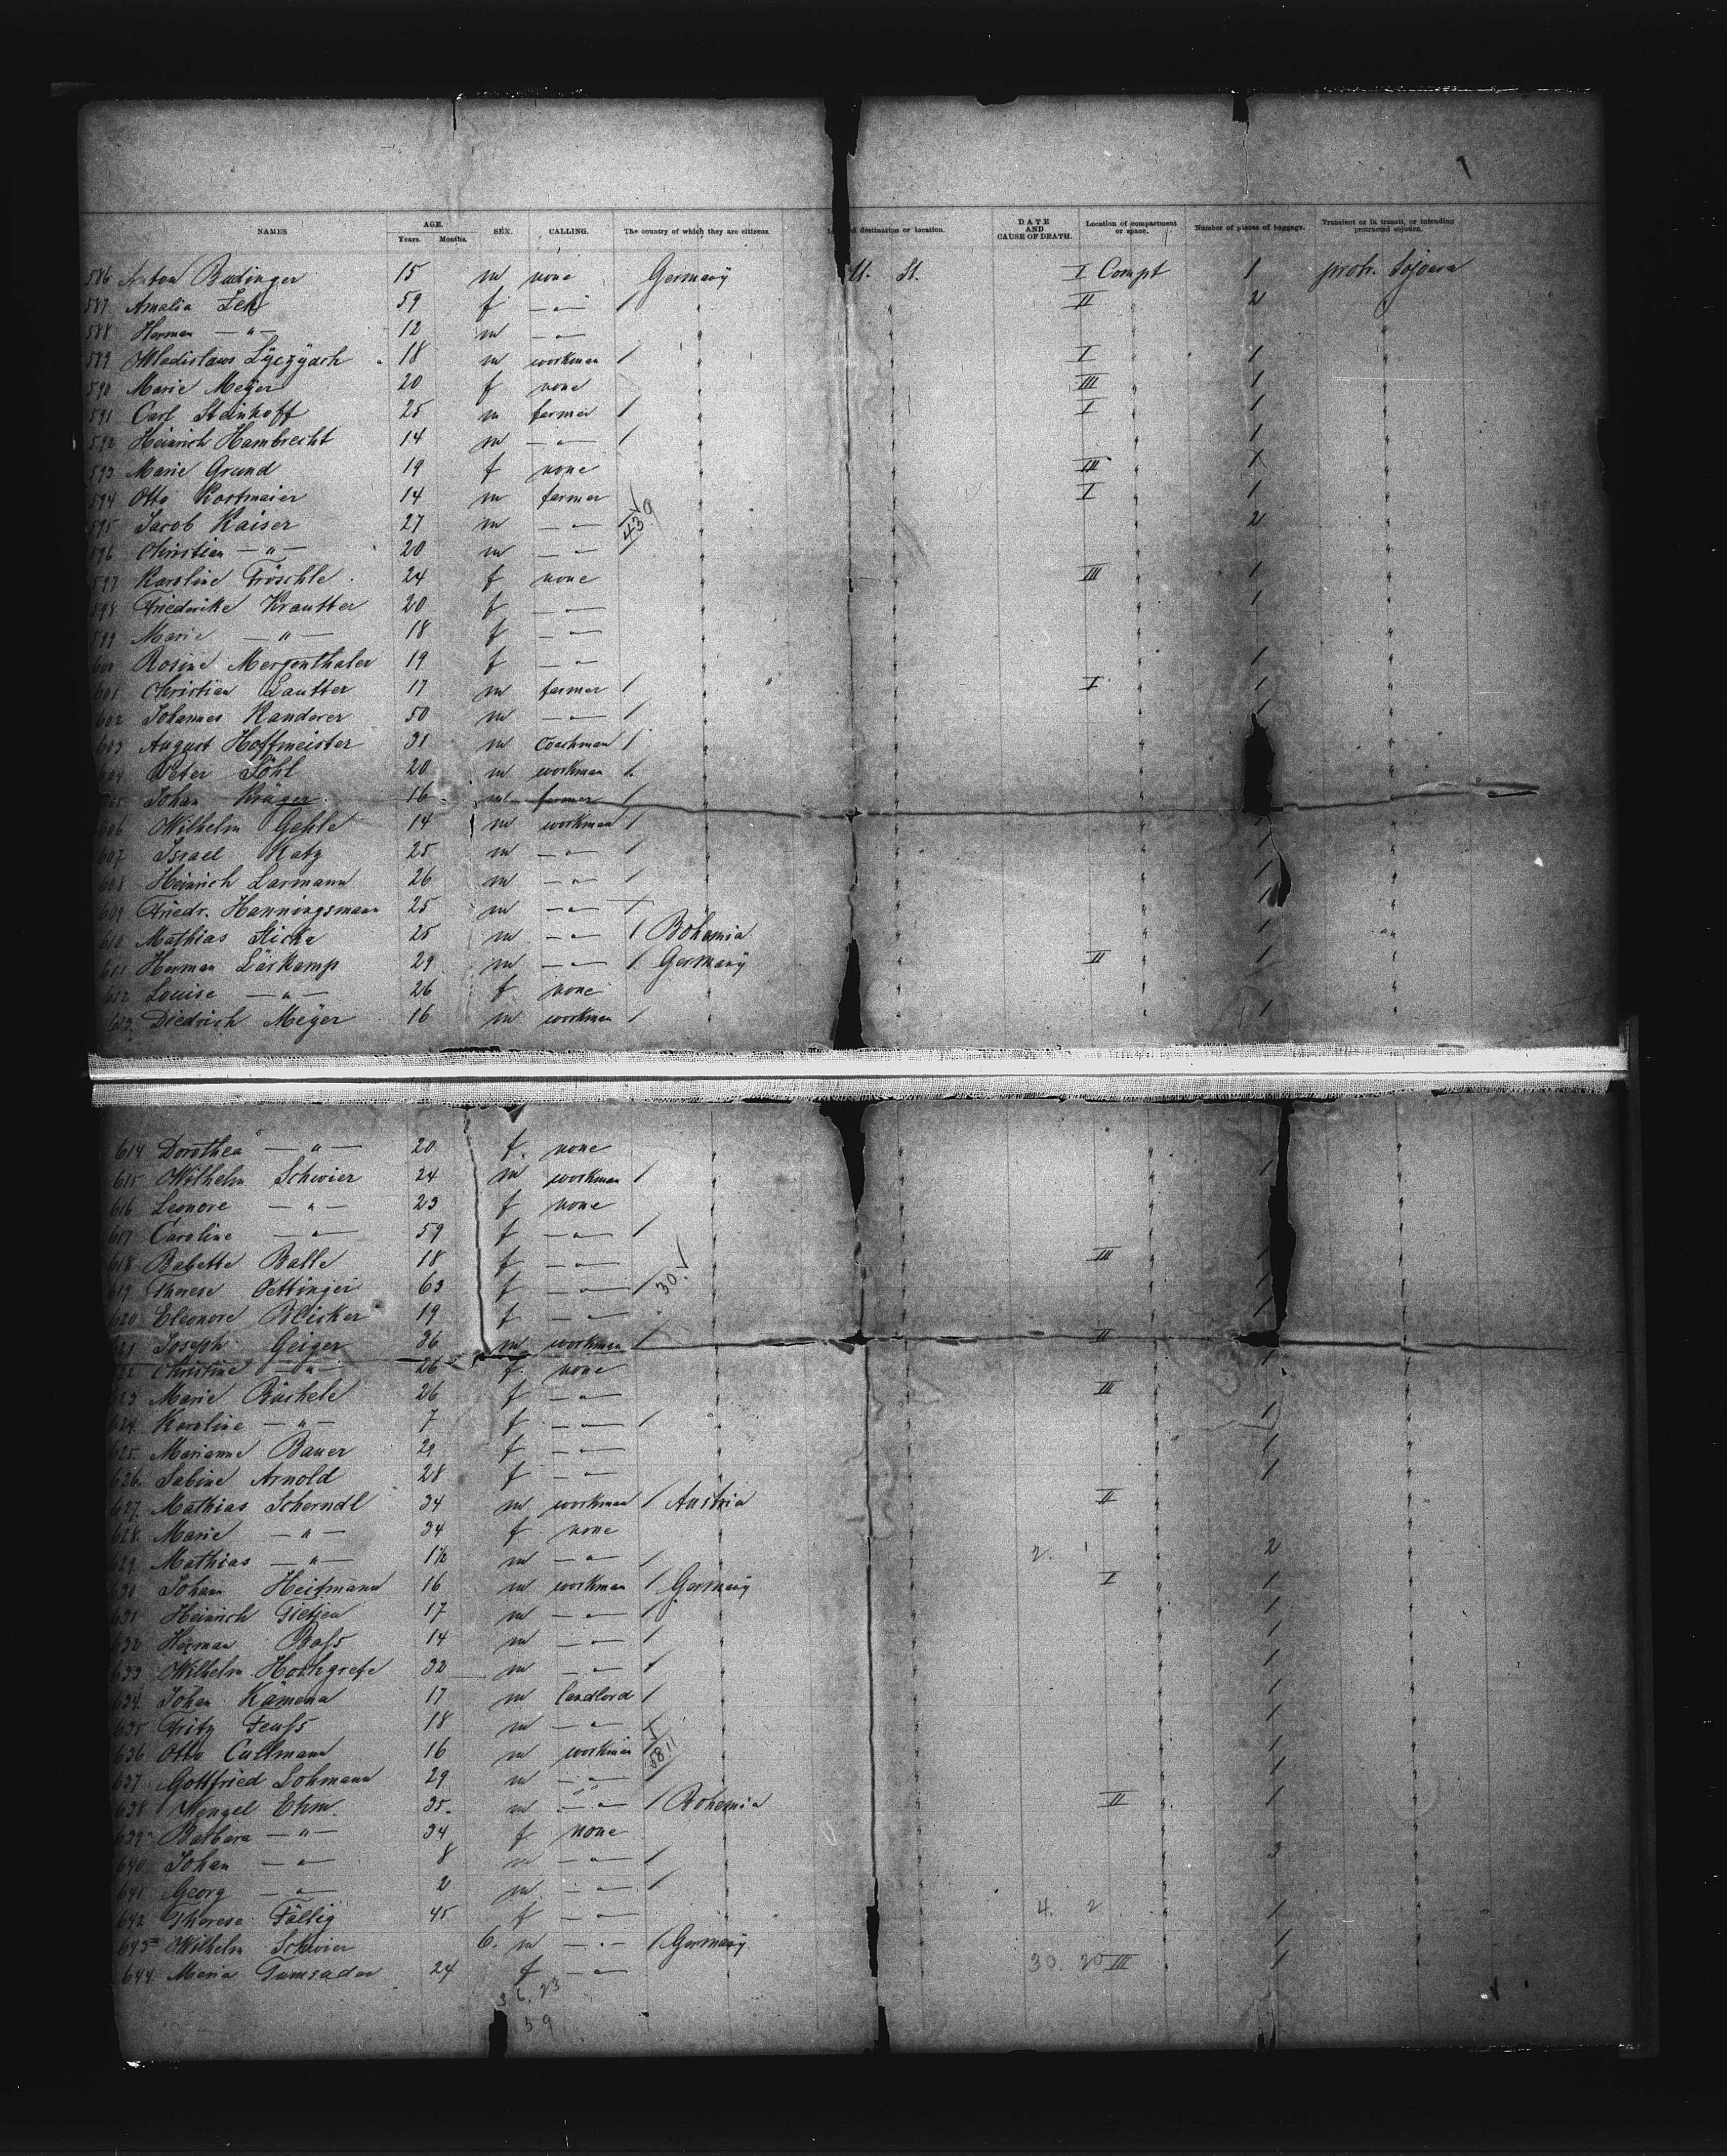 NAMES. AGE. Years. Months. SEX. CALLING. The country of which they are citizens. destination or location. DATE AND CAUSE OF DEATH. Location of compartment or space. Number of pieces of baggage. Transient or in transit, or intending protracted sojourn.
586 Anton Budinger 15 m none Germany U. St. I Compt 1 protr. Sojourn
587 Amalia 59 f — " — " " II " 2 "
588 Herman — " — 12 m — " — " " " "
589 Wladislaws 18 m workman / " " I " 1 "
590 Marie Meÿer 20 f none " " III " 1 "
591 Carl Steinhoff 25 m farmer / " " I " 1 "
592 Heinrich Hambrecht 14 m — " — / " " " 1 "
593 Marie Grund 19 f none " " III " 1 "
594 Otto Kostmaier 14 m farmer " " I " 1 "
595 Jacob Kaiser 27 m — " — " " " 2 "
596 Christian — " — 20 m — " — / " " " "
597 Karoline Fröschle 24 f none " " III " 1 "
598 Friederike Krautter 20 f — " — " " " 1 "
599 Marie — " — 18 f — " — " " " "
600 Rosine Mergenthaler 19 f — " — " " " 1 "
601 Christian Lautter 17 m farmer / " " I " 1 "
602 Johannes Kanderer 50 m — " — / " " " 1 "
603 August Hoffmeister 31 m Coachman / " " " "
604 Peter Söhl 20 m workman / " " " "
605 Johan Krüger 16 m farmer / " " " "
606 Wilhelm Gehle 14 m workman / " " " 1 "
607 Israel Katz 25 m — " — / " " " 1 "
608 Heinrich Larmann 26 m — " — / " " " 1 "
609 Friedr. Hanningsmann 25 m — " — / " " " 1 "
610 Mathias 25 m — " — / Bohemia " " 1 "
611 Herman Lärkamp 29 m — " — / Germany " II " 1 "
612 Louise — " — 26 f none " " " "
613 Diedrich Meÿer 16 m workman / " " " 1 "
614 Dorothea — " — 20 f. none " " " "
615 Wilhelm Schwier 24 m workman / " " " 1 "
616 Leonore — " — 23 f none " " " "
617 Caroline — " — 59 f — " — / " " " "
618 Babette Balle 18 f — " — " " III " 1 "
619 Therese Oettinger 63 f — " — / 30. " " " 1 "
620 Eleonore Blicker 19 f — " — " " " 1 "
621 Joseph Geiger 36 m workman / " " II " "
622 Christine — " — 26 f. none " " " 1 "
623 Marie Büchele 26 f — " — " " III " "
624 Karoline — " — 7 f — " — / " " " 1 "
625 Marianne Bauer 29 f — " — " " " 1 "
626 Sabine Arnold 28 f — " — " " " 1 "
627 Mathias Scherndl 34 m workman / Austria " II " "
628 Marie — " — 34 f none " " " "
629 Mathias — " — 1½ m — " — / " " 2. 1 " 2 "
630 Johann Heitmann 16 m workman / Germany " I " 1 "
631 Heinrich Tietjen 17 m — " — / " " " 1 "
632 Herman Bass 14 m — " — / " " " 1 "
633 Wilhelm Hothgrefe 32 m — " — / " " " 1 "
634 Johan Kämena 17 m landlord / " " " 1 "
635 Fritz Feuss 18 m — " — / " " " 1 "
636 Otto Cullmann 16 m workman / 58 11 " " " 1 "
637 Gottfried Lohmann 29 m — " — / " " " 1 "
638 Wenzel Ehm 35. m — " — / Bohemia " II " 1 "
639 Barbara — " — 34 f none " " " "
640 Johan — " — 8 m — " — / " " " 3 "
641 Georg — " — 2 m — " — / " " " "
642 Therese 45 f — " — " " 4. 2 " 1 "
643 Wilhelm Schwier 6. m — " — / Germany " " 1 "
644 Maria 24 f — " — " 30. 20 III " 1 "
36. 23
59